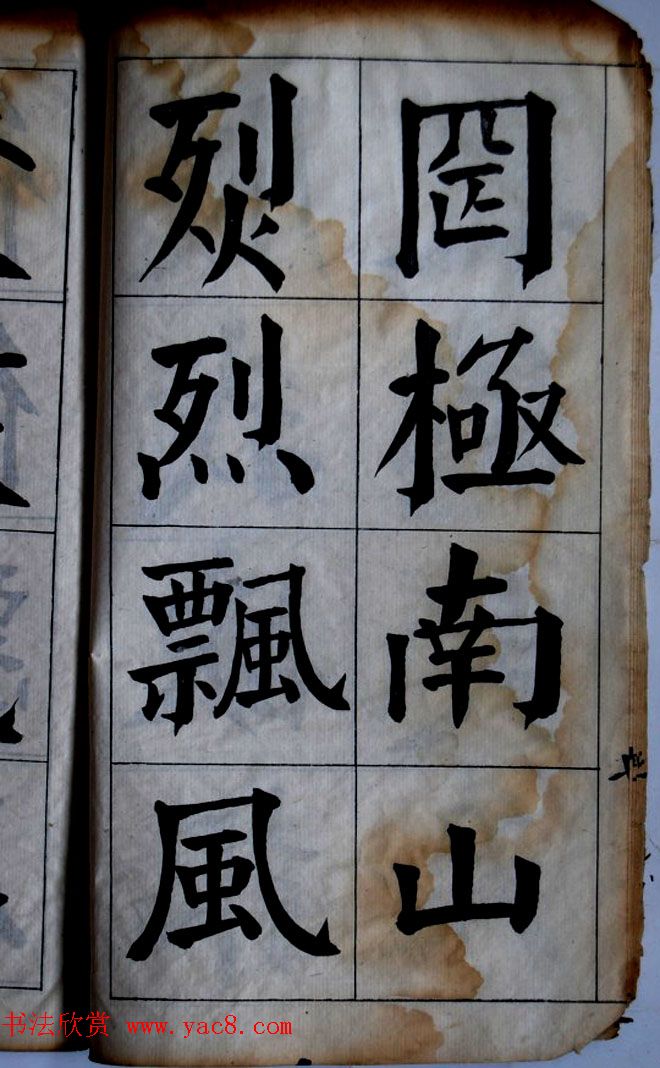 罔極南山
烮烈飄風
书法欣赏 www.yac8.com